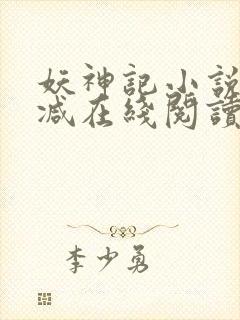 妖神記小說
減在綫閱讀
李少勇